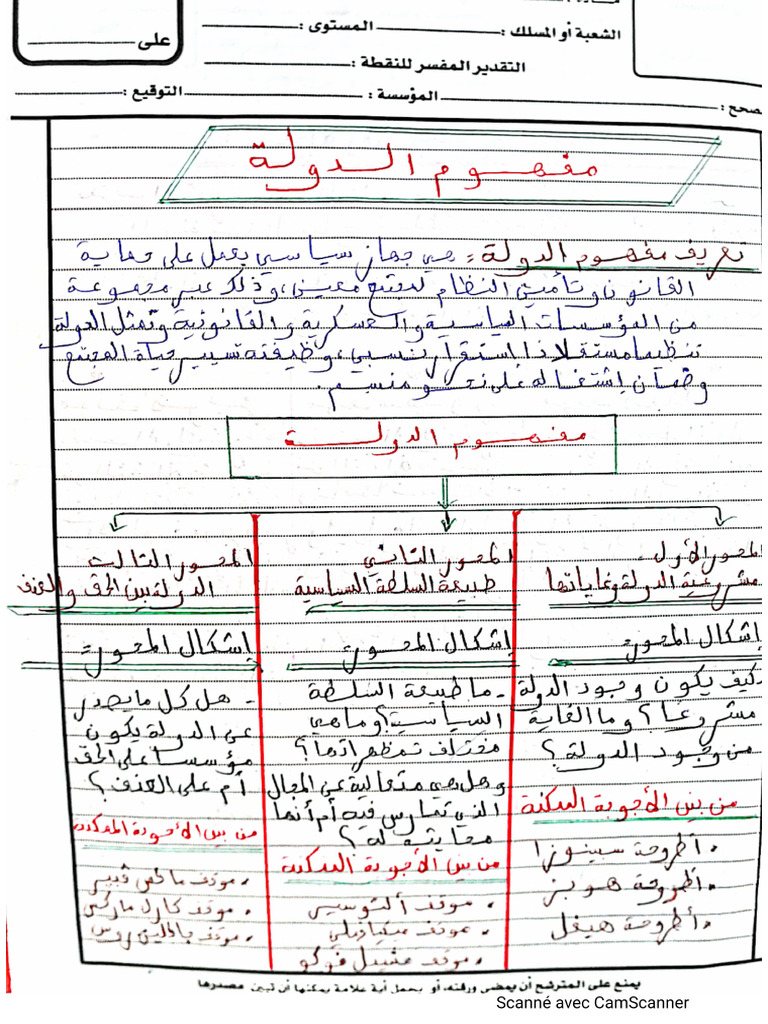 الشعبة أو المسلك : المستوى :
على
التقدير المفسر للنقطة :
صحح : المؤسسة : التوقيع :
مفهوم الدولة
تعريف مفهوم الدولة : هي جهاز سياسي يعمل على حماية
القانون وتأمين النظام لمجتمع معين، وذلك عبر مجموعة
من المؤسسات السياسية والعسكرية والقانونية وتمثل الدولة
تنظيما مستقلا ذا استقرار نسبي، وظيفته تسيير حياة المجتمع
وضمان إشتغاله على نحو منسجم.
مفهوم الدولة
المحور الأول
مشروعية الدولة وغاياتها
إشكال المحور:
كيف يكون وجود الدولة
مشروعا؟ وما الغاية
من وجود الدولة؟
من بين الأجوبة الممكنة
أطروحة سبينوزا
أطروحة هوبز
أطروحة هيغل
المحور الثاني
طبيعة السلطة السياسية
إشكال المحور:
- ما طبيعة السلطة
السياسية؟ وما هي
مختلف تمظهراتها؟
وهل هي متعالية عن المجال
الذي تمارس فيه أم أنها
محايثة له؟
من بين الأجوبة الممكنة
موقف ألتوسير
موقف ميكيافيلي
موقف مشيل فوكو
المحور الثالث
الدولة بين الحق والعنف
إشكال المحور:
- هل كل ما يصدر
عن الدولة يكون
مؤسسا على الحق
أم على العنف؟
من بين الأجوبة الممكنة
موقف ماكس فيبر
موقف كارل ماركس
موقف جاكلين روس
يمنع على المترشح أن يمضي ورقته، أو يحمل أية علامة يمكنها أن تبين مصدرها
Scanné avec CamScanner